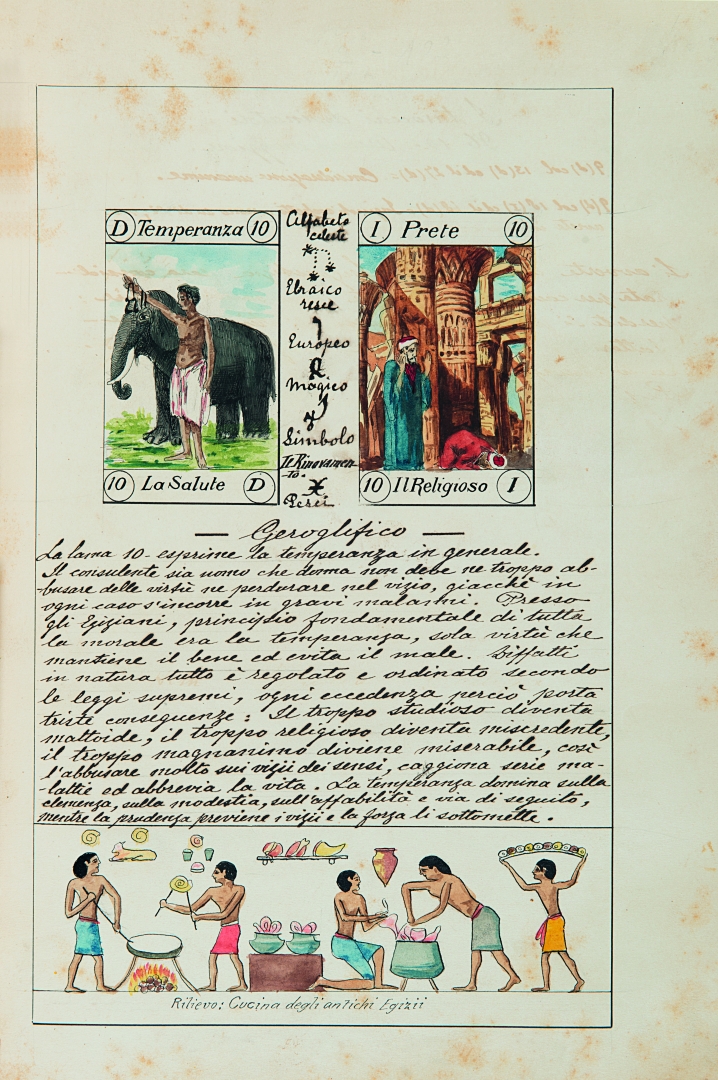 D Temperanza 10
10 La Salute D
Alfabeto
celeste
Ebraico
resce
Europeo
R
Magico
Simbolo
Il Rinovamen-
to.
Pesci
I Prete 10
10 Il Religioso I
— Geroglifico —
La lama 10 - esprime la temperanza in generale.
Il consulente sia uomo che donna non deve ne troppo ab-
-busare delle virtù ne perdurare nel vizio, giacchè in
ogni caso s'incorre in gravi malanni. Presso
gli Egiziani, principio fondamentale di tutta
la morale era la temperanza, sola virtù che
mantiene il bene ed evita il male. Diffatti
in natura tutto è regolato e ordinato secondo
le leggi supremi, ogni eccedenza perciò porta
triste conseguenze: Il troppo studioso diventa
mattoide, il troppo religioso diventa miscredente,
il troppo magnanimo diviene miserabile, così
l'abbusare molto sui vizii dei sensi, caggiona serie ma-
-lattie ed abbrevia la vita. La temperanza domina sulla
clemenza, sulla modestia, sull'affabilità e via di seguito,
mentre la prudenza previene i vizii e la forza li sottomette.
Rilievo: Cucina degli antichi Egizii